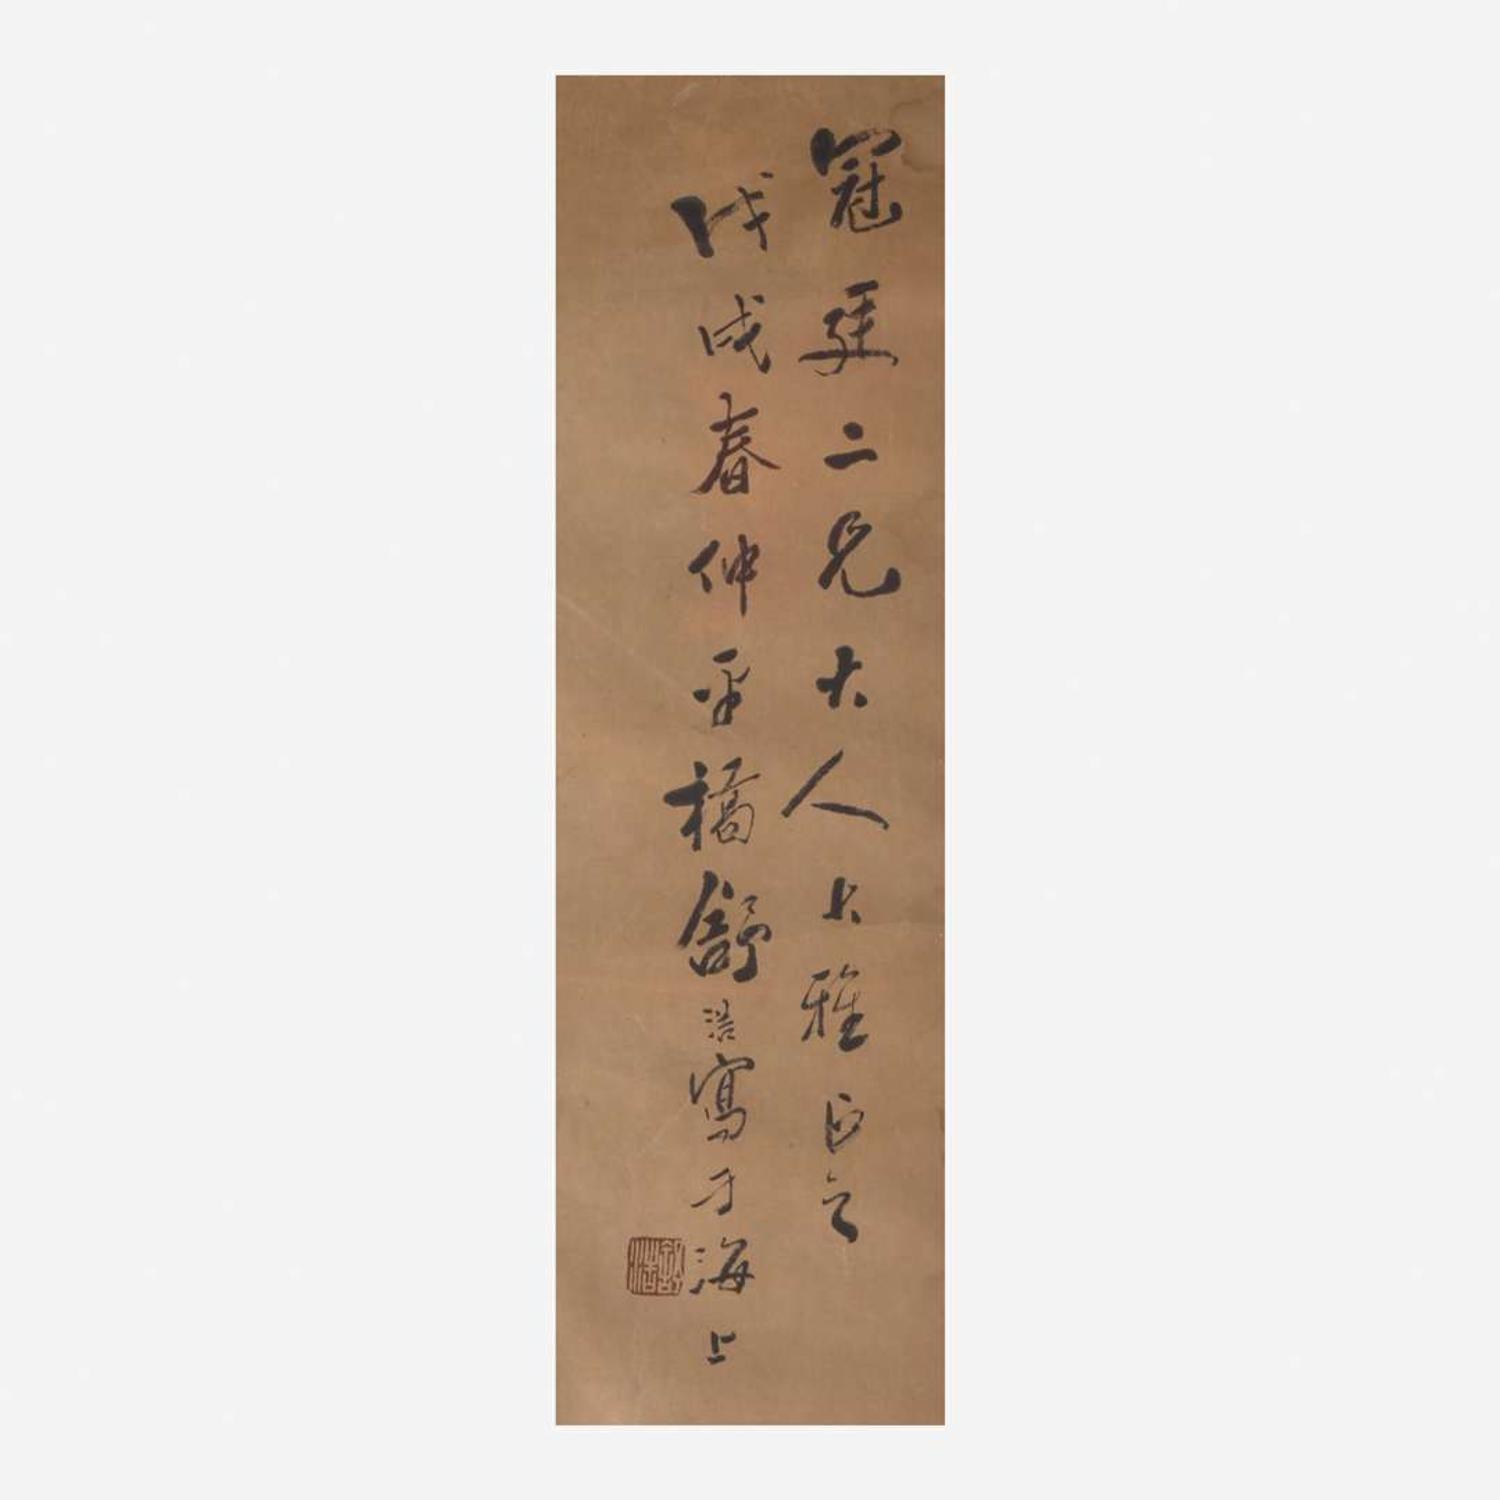 冠廷二兄大人大雅正之
戊戌春仲平橋舒浩寫于海上
舒浩